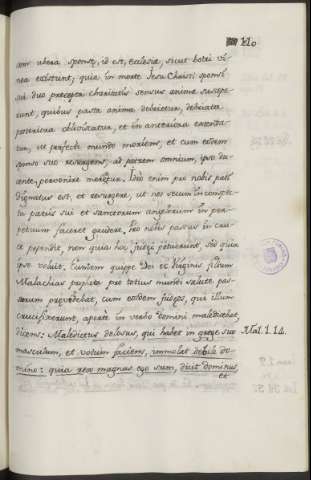 210
cum ubera sponsę, id est, ecclesię, sicut botri vi-
nea existunt; quia in morte Jesu Christi sponsi
sui duo precepta charitatis sensus anime suscepe-
runt, quibus pasta anima debrietur, debriata
posteriora obliviscatur, et in anteriora extenda-
tur, ut perfecte mundo moriens, et cum eodem
sponso suo resurgens, ad patrem omnium, ipso du-
cente, pervenire mereatur. Ideo enim pro nobis pati
dignatus est, et resurgere, ut nos secum in conspec-
tu patris sui et sanctorum angelorum in per-
petuum faceret gaudere, pro nobis passus in cru-
ce pependit, non quia hoc judęi petierunt, sed quia
ipse voluit. Eundem quippe Dei et Virginis filium
Malachias propheta pro totius mundi salute pas-
surum prophetabat, cum eosdem judęos, qui illum
crucifixerunt, aperte in verbo domini maledicebat,
dicens: Maledictus dolosus, qui habet in grege suo
masculum, et votum faciens, immolat debile do-
mino: quia rex magnus ego sum, dicit dominus
et
Mal. 1. 14.